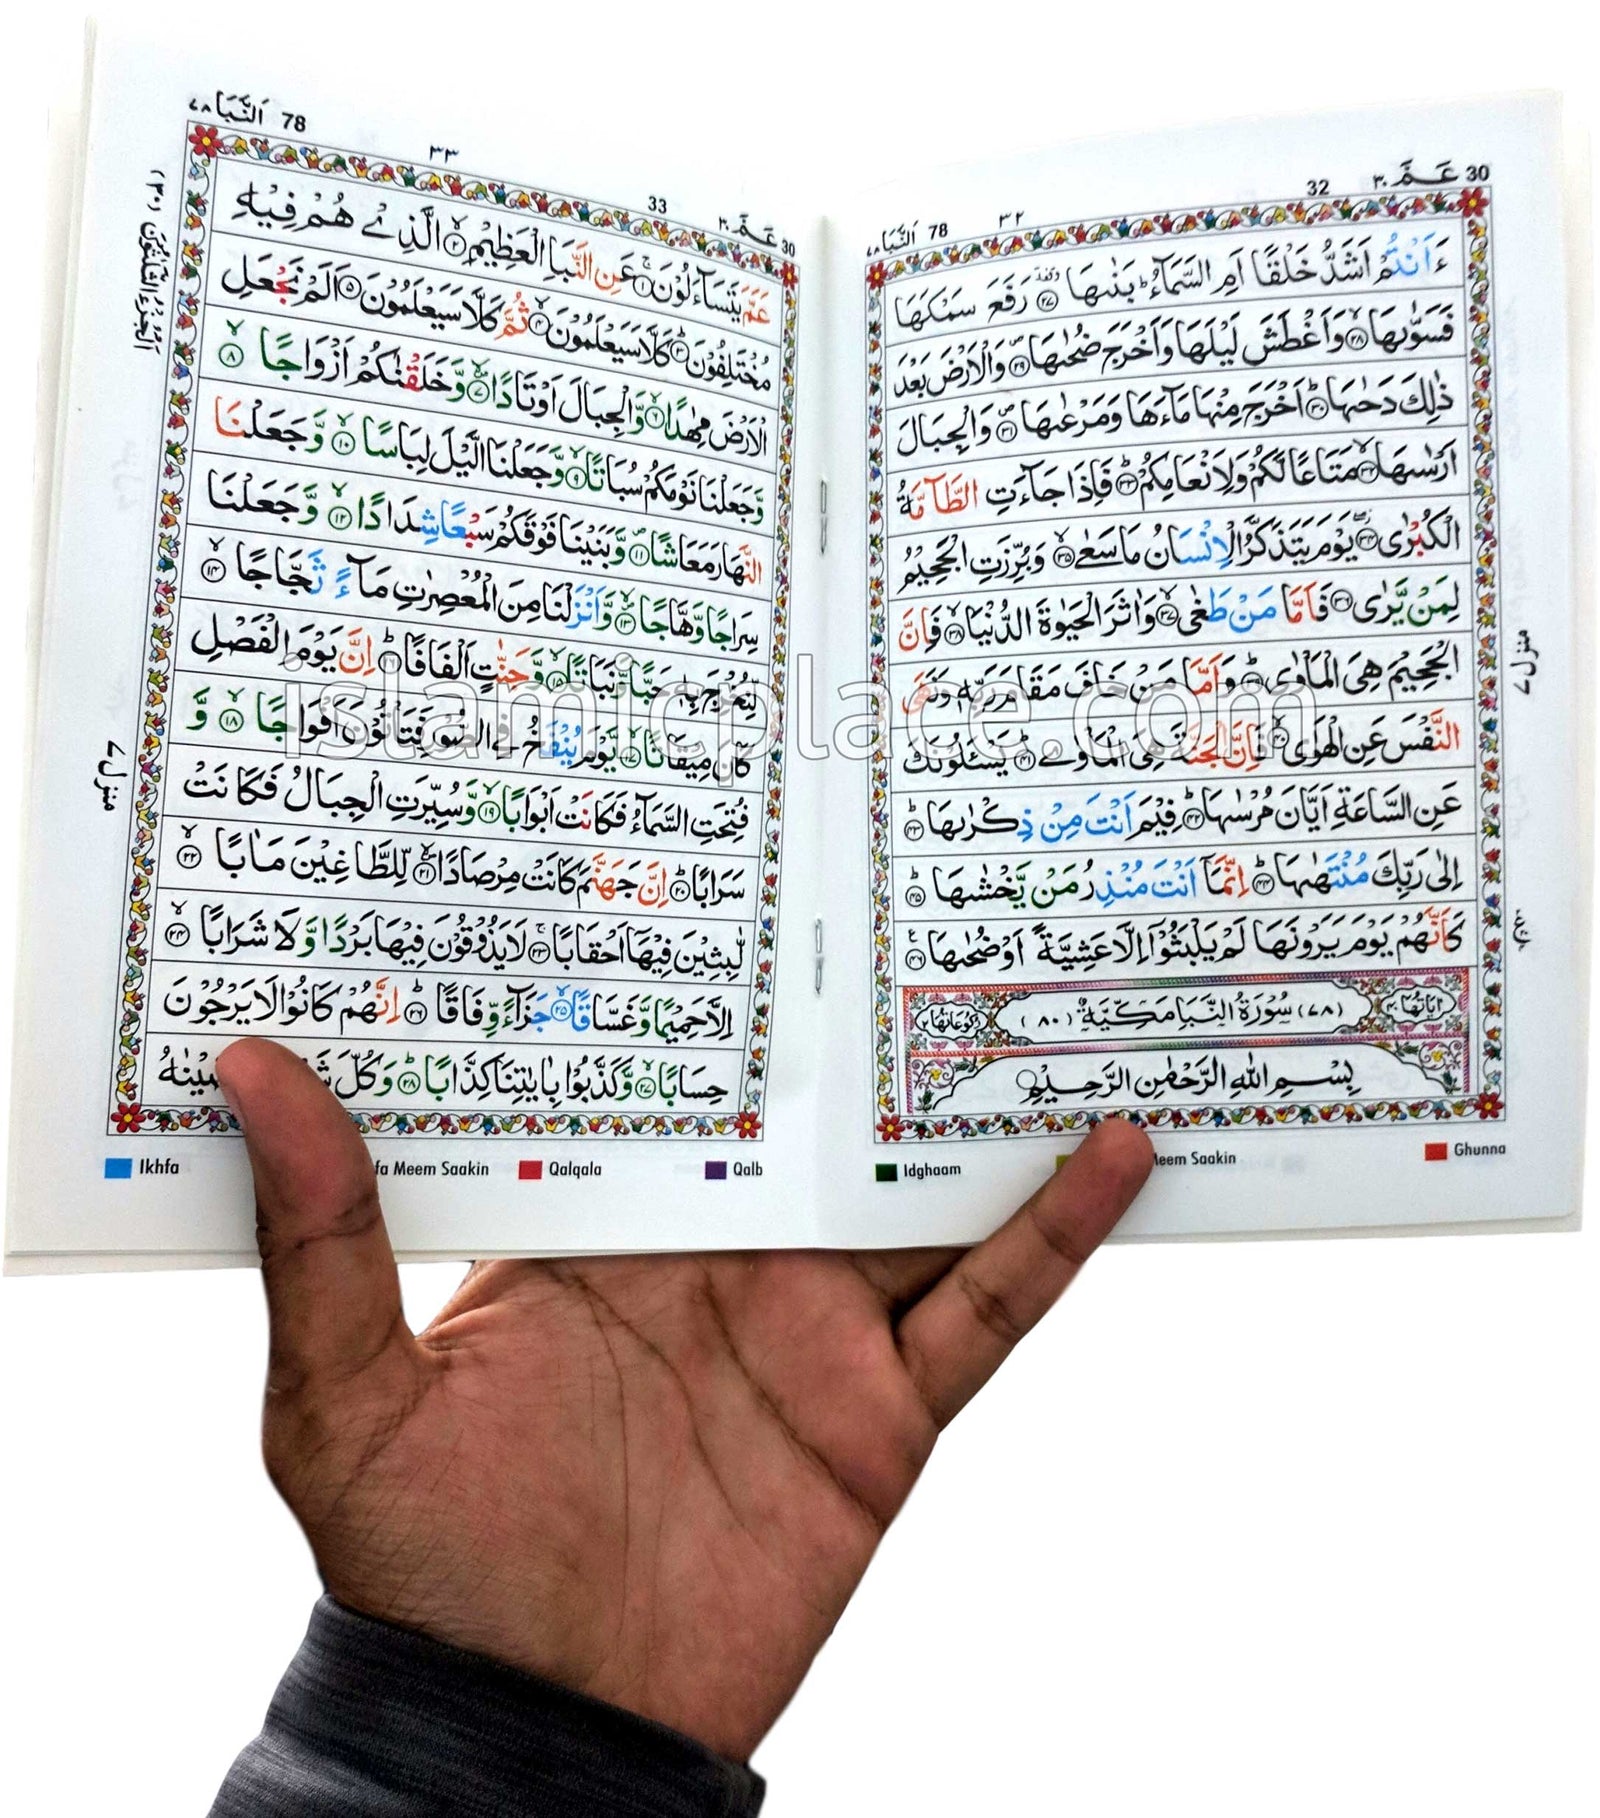 عَمَّ ٣٠ 30
32
٣٢
اَلنَّبَا ٧٨ 78
ءَاَنْتُمْ اَشَدُّ خَلْقًا اَمِ السَّمَآءُ ؕ بَنٰىهَا ۟ وقفة ﴿٢٧﴾ رَفَعَ سَمْكَهَا
فَسَوّٰىهَا ۙ﴿٢٨﴾ وَاَغْطَشَ لَيْلَهَا وَاَخْرَجَ ضُحٰىهَا ۪﴿٢٩﴾ وَالْاَرْضَ بَعْدَ
ذٰلِكَ دَحٰىهَا ؕ﴿٣٠﴾ اَخْرَجَ مِنْهَا مَآءَهَا وَمَرْعٰىهَا ۪﴿٣١﴾ وَالْجِبَالَ
اَرْسٰىهَا ۙ﴿٣٢﴾ مَتَاعًا لَّكُمْ وَلِاَنْعَامِكُمْ ؕ﴿٣٣﴾ فَاِذَا جَآءَتِ الطَّآمَّةُ
الْكُبْرٰى ۖ﴿٣٤﴾ يَوْمَ يَتَذَكَّرُ الْاِنْسَانُ مَا سَعٰى ۙ﴿٣٥﴾ وَبُرِّزَتِ الْجَحِيْمُ
لِمَنْ يَّرٰى ﴿٣٦﴾ فَاَمَّا مَنْ طَغٰى ۙ﴿٣٧﴾ وَاٰثَرَ الْحَيٰوةَ الدُّنْيَا ۙ﴿٣٨﴾ فَاِنَّ
الْجَحِيْمَ هِىَ الْمَاْوٰى ؕ﴿٣٩﴾ وَاَمَّا مَنْ خَافَ مَقَامَ رَبِّهٖ وَنَهَى
النَّفْسَ عَنِ الْهَوٰى ۙ﴿٤٠﴾ فَاِنَّ الْجَنَّةَ هِىَ الْمَاْوٰى ؕ﴿٤١﴾ يَسْئَلُوْنَكَ
عَنِ السَّاعَةِ اَيَّانَ مُرْسٰىهَا ؕ﴿٤٢﴾ فِيْمَ اَنْتَ مِنْ ذِكْرٰىهَا ؕ﴿٤٣﴾
اِلٰى رَبِّكَ مُنْتَهٰىهَا ؕ﴿٤٤﴾ اِنَّمَآ اَنْتَ مُنْذِرُ مَنْ يَّخْشٰىهَا ؕ﴿٤٥﴾
كَاَنَّهُمْ يَوْمَ يَرَوْنَهَا لَمْ يَلْبَثُوْٓا اِلَّا عَشِيَّةً اَوْ ضُحٰىهَا ﴿٤٦﴾
اٰيَاتُهَا ٤٠ (٧٨) سُوْرَةُ النَّبَاِ مَكِّيَّةٌ (٨٠) رُكُوْعَاتُهَا ٢
بِسْمِ اللّٰهِ الرَّحْمٰنِ الرَّحِيْمِ
منزل ٧
Idghaam
Meem Saakin
Ghunna
عَمَّ ٣٠ 30
33
٣٣
اَلنَّبَا ٧٨ 78
عَمَّ يَتَسَآءَلُوْنَ ۚ﴿١﴾ عَنِ النَّبَاِ الْعَظِيْمِ ۙ﴿٢﴾ الَّذِىْ هُمْ فِيْهِ
مُخْتَلِفُوْنَ ؕ﴿٣﴾ كَلَّا سَيَعْلَمُوْنَ ۙ﴿٤﴾ ثُمَّ كَلَّا سَيَعْلَمُوْنَ ﴿٥﴾ اَلَمْ نَجْعَلِ
الْاَرْضَ مِهٰدًا ۙ﴿٦﴾ وَّالْجِبَالَ اَوْتَادًا ۪ۙ﴿٧﴾ وَّخَلَقْنٰكُمْ اَزْوَاجًا ۙ﴿٨﴾
وَّجَعَلْنَا نَوْمَكُمْ سُبَاتًا ۙ﴿٩﴾ وَّجَعَلْنَا الَّيْلَ لِبَاسًا ۙ﴿١٠﴾ وَّجَعَلْنَا
النَّهَارَ مَعَاشًا ۪﴿١١﴾ وَّبَنَيْنَا فَوْقَكُمْ سَبْعًا شِدَادًا ۙ﴿١٢﴾ وَّجَعَلْنَا
سِرَاجًا وَّهَّاجًا ۪ۙ﴿١٣﴾ وَّاَنْزَلْنَا مِنَ الْمُعْصِرٰتِ مَآءً ثَجَّاجًا ۙ﴿١٤﴾
لِّنُخْرِجَ بِهٖ حَبًّا وَّنَبَاتًا ۙ﴿١٥﴾ وَّجَنّٰتٍ اَلْفَافًا ؕ﴿١٦﴾ اِنَّ يَوْمَ الْفَصْلِ
كَانَ مِيْقَاتًا ۙ﴿١٧﴾ يَّوْمَ يُنْفَخُ فِى الصُّوْرِ فَتَاْتُوْنَ اَفْوَاجًا ۙ﴿١٨﴾ وَّ
فُتِحَتِ السَّمَآءُ فَكَانَتْ اَبْوَابًا ۙ﴿١٩﴾ وَّسُيِّرَتِ الْجِبَالُ فَكَانَتْ
سَرَابًا ؕ﴿٢٠﴾ اِنَّ جَهَنَّمَ كَانَتْ مِرْصَادًا ۪ۙ﴿٢١﴾ لِّلطَّاغِيْنَ مَاٰبًا ۙ﴿٢٢﴾
لّٰبِثِيْنَ فِيْهَآ اَحْقَابًا ۚ﴿٢٣﴾ لَا يَذُوْقُوْنَ فِيْهَا بَرْدًا وَّلَا شَرَابًا ۙ﴿٢٤﴾
اِلَّا حَمِيْمًا وَّغَسَّاقًا ۙ﴿٢٥﴾ جَزَآءً وِّفَاقًا ؕ﴿٢٦﴾ اِنَّهُمْ كَانُوْا لَا يَرْجُوْنَ
حِسَابًا ۙ﴿٢٧﴾ وَّكَذَّبُوْا بِاٰيٰتِنَا كِذَّابًا ؕ﴿٢٨﴾ وَكُلَّ
اَلْجُزْءُ الثَّلٰثُوْنَ (٣٠)
منزل ٧
Ikhfa
fa Meem Saakin
Qalqala
Qalb
islamicplace.com